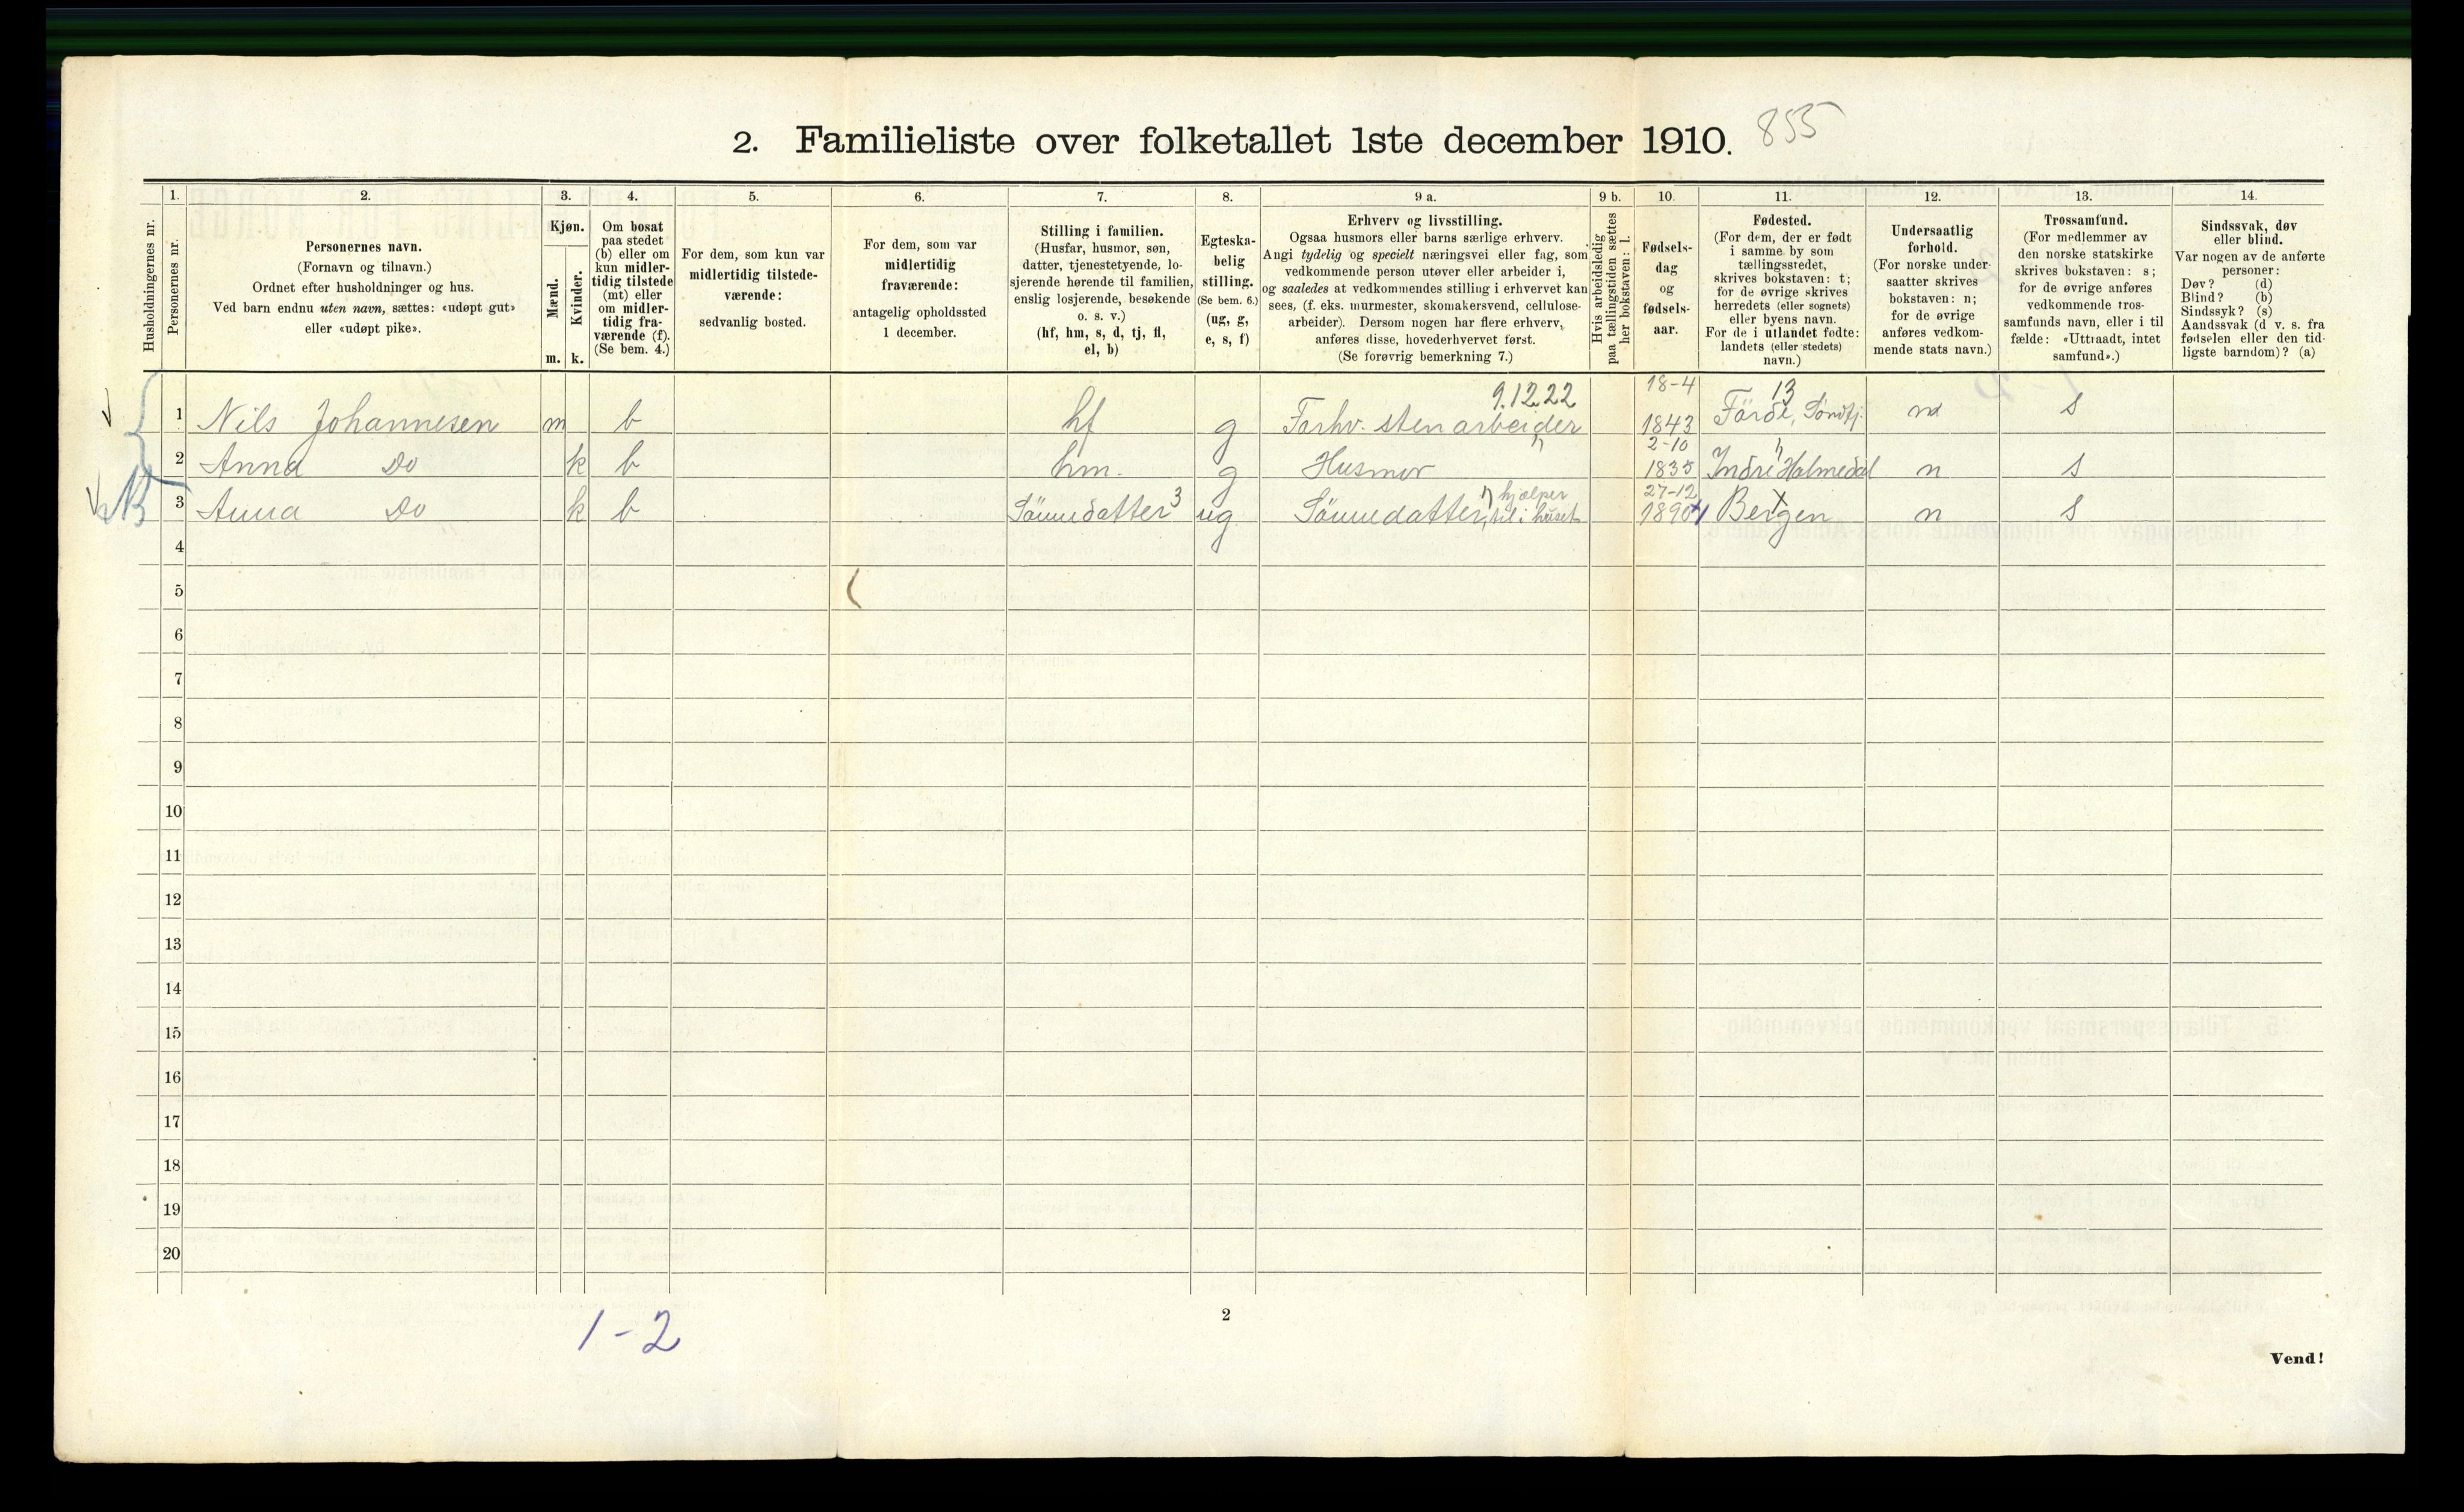 2. Familieliste over folketallet 1ste december 1910.
855
1.
2.
3.
4.
5.
6.
7.
8.
9 a.
9 b.
10.
11.
12.
13.
14.
Husholdningernes nr.
Personernes nr.
Personernes navn.
(Fornavn og tilnavn.)
Ordnet efter husholdninger og hus.
Ved barn endnu uten navn, sættes: «udøpt gut»
eller «udøpt pike».
Kjøn.
Mænd.
Kvinder.
m.
k.
Om bosat
paa stedet
(b) eller om
kun midler-
tidig tilstede
(mt) eller
om midler-
tidig fra-
værende (f).
(Se bem. 4.)
For dem, som kun var
midlertidig tilstede-
værende:
sedvanlig bosted.
For dem, som var
midlertidig
fraværende:
antagelig opholdssted
1 december.
Stilling i familien.
(Husfar, husmor, søn,
datter, tjenestetyende, lo-
sjerende hørende til familien,
enslig losjerende, besøkende
o. s. v.)
(hf, hm, s, d, tj, fl,
el, b)
Egteska-
belig
stilling.
(Se bem. 6.)
(ug, g,
e, s, f)
Erhverv og livsstilling.
Ogsaa husmors eller barns særlige erhverv.
Angi tydelig og specielt næringsvei eller fag, som
vedkommende person utøver eller arbeider i,
og saaledes at vedkommendes stilling i erhvervet kan
sees, (f. eks. murmester, skomakersvend, cellulose-
arbeider). Dersom nogen har flere erhverv,
anføres disse, hovederhvervet først.
(Se forøvrig bemerkning 7.)
Hvis arbeidsledig
paa tællingstiden sættes
her bokstaven: l.
Fødsels-
dag
og
fødsels-
aar.
Fødested.
(For dem, der er født
i samme by som
tællingsstedet,
skrives bokstaven: t;
for de øvrige skrives
herredets (eller sognets)
eller byens navn.
For de i utlandet fødte:
landets (eller stedets)
navn.)
Undersaatlig
forhold.
(For norske under-
saatter skrives
bokstaven: n;
for de øvrige
anføres vedkom-
mende stats navn.)
Trossamfund.
(For medlemmer av
den norske statskirke
skrives bokstaven: s;
for de øvrige anføres
vedkommende tros-
samfunds navn, eller i til
fælde: «Uttraadt, intet
samfund».)
Sindssvak, døv
eller blind.
Var nogen av de anførte
personer:
Døv? (d)
Blind? (b)
Sindssyk? (s)
Aandssvak (d v. s. fra
fødselen eller den tid-
ligste barndom)? (a)
9.12.22 18-4 13
1 Nils Johannesen m b hf g Forhv. stenarbeider 1843 Förde, Söndfj. n s
2-10
2 Anna Do k b hm. g Husmor 1835 Indre Holmedal n s
hjælper 27-12
3 Anna Do k b Sönnedatter 3 ug Sönnedatter, til i huset 1890 Bergen n s
4
5
6
7
8
9
10
11
12
13
14
15
16
17
18
19
20
1-2
2
Vend!